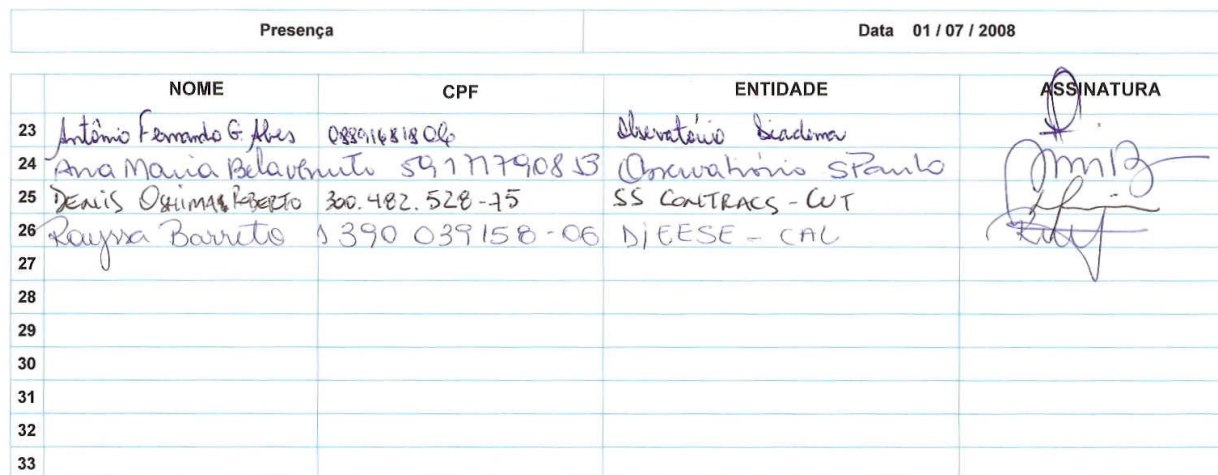 Presença Data 01 / 07 / 2008
NOME CPF ENTIDADE ASSINATURA
23 Antônio Fernando G. Alves Observatório Diadema
24 Ana Maria 591177790853 Observatório SPaulo
25 DENIS OSHIMA ROBERTO 300.482.528-75 SS CONTRACS - CUT
26 Rayssa Barreto 390 039158-06 DIEESE - CAL
27
28
29
30
31
32
33